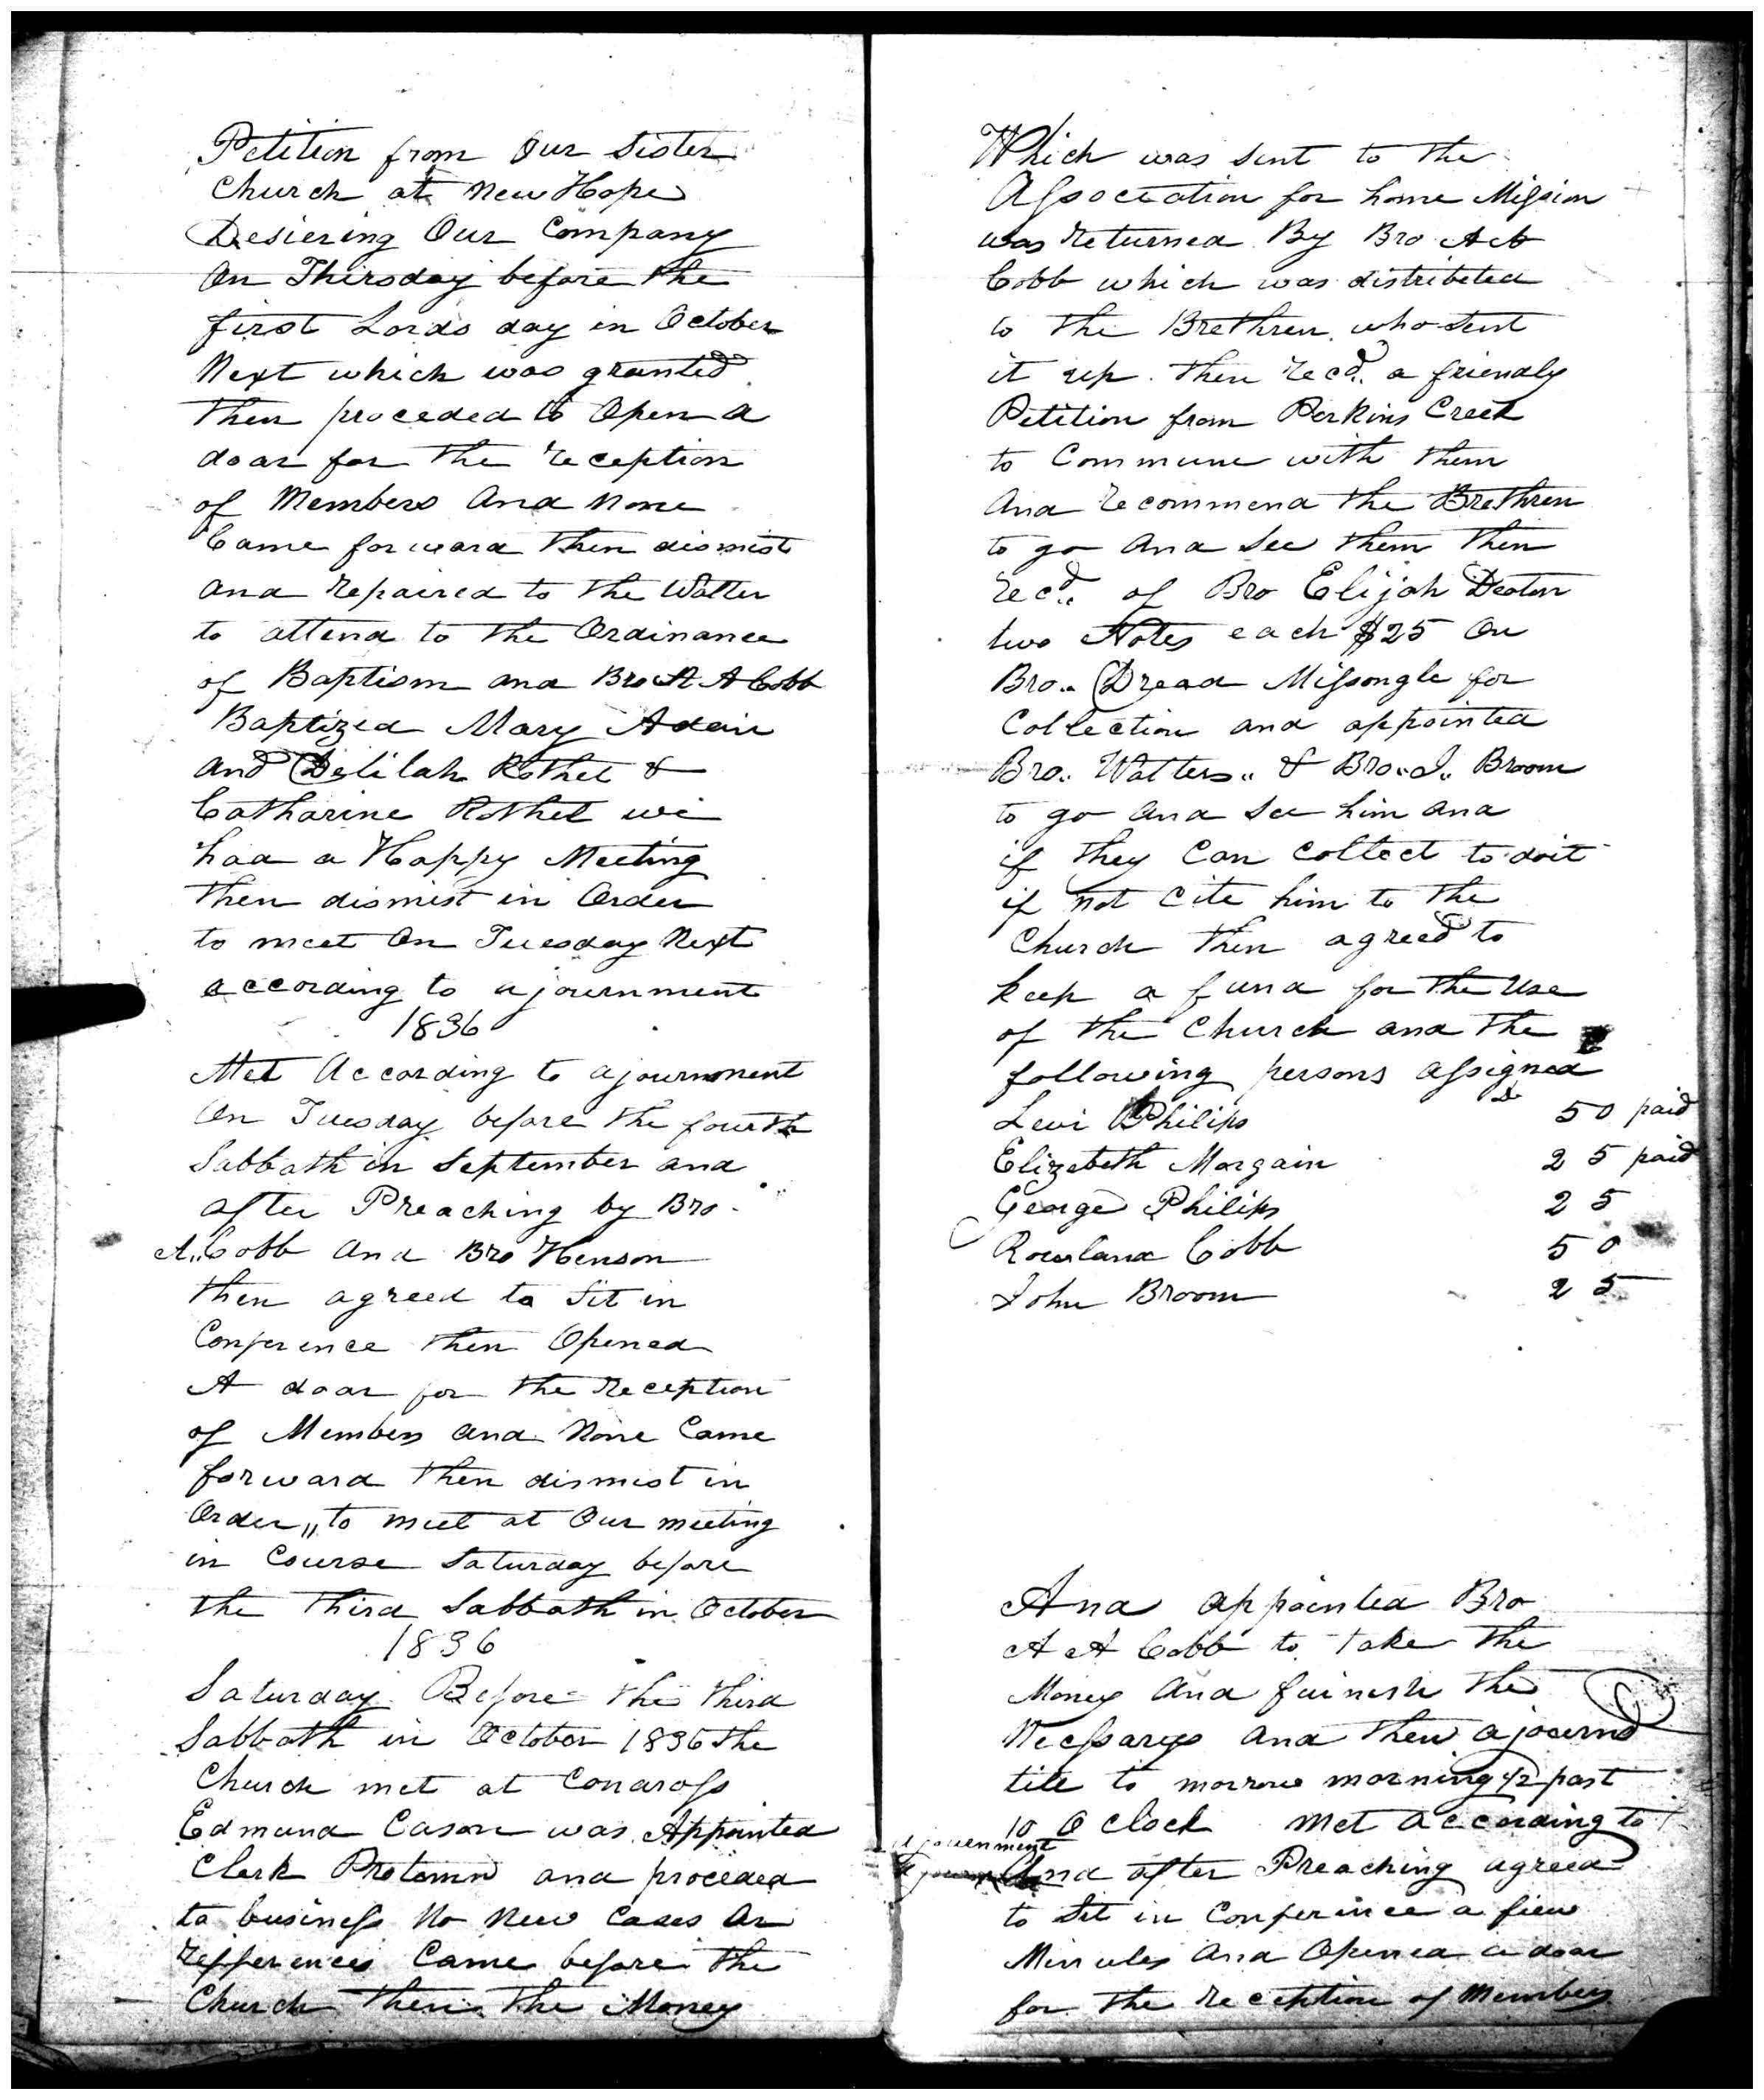 Petition from Our Sister
Church at New Hope
Desiering Our Company
On Thirsday before the
first Lords day in October
Next which was granted
then proceded to Open a
doar for the reception
of Members And None
Came forward then dismist
and repaired to the Watter
to attend to the Ordinance
of Baptism and Bro A A Cobb
Baptized Mary Adair
and Delilah Rothel &
Catharine Rothel we
had a Happy Meeting
then dismist in Order
to meet On Tuesday Next
according to ajournment
1836
Met According to ajournment
On Tuesday before the fourth
Sabbath in September and
after Preaching by Bro
A,, Cobb And Bro Henson
then agreed to Sit in
Conference then Opened
A doar for the reception
of Members and None Came
forward then dismist in
Order,, to meet at Our meeting
in Course Saturday before
the third Sabbath in October
1836
Saturday Before the third
Sabbath in October 1836 the
Church met at Conaross
Edmund Cason was Appointed
Clerk Protemn and proceded
to business No New Cases Or
refferences Came before the
Church then the Money
Which was sent to the
Association for home Mission
was returned By Bro A
Cobb which was distributed
to the Brethren who Sent
it up. then recd. a friendly
Petition from Perkins Creek
to Commune with them
And recommend the Brethren
to go And See them then
recd. of Bro Elijah Deaton
two Notes each $25 On
Bro.. Dread Missongle for
Collection and appointed
Bro.. Watters,, & Bro.. J.. Broom
to go And See him And
if they Can Collect to doit
if not Cite him to the
Church then agreed to
keep a fund for the Use
of the Church and the
following persons assigned
Levi Philips 50 paid
Elizebeth Morgain 25 paid
George Philips 25
Rowland Cobb 50
John Broom 25
And appointed Bro
A A Cobb to take the
Money And furnish the
Necssarys And then ajournd
till to morrow morning 1/2 past
10 O Clock Met according to
ajouenment
And after Preaching agreed
to Sit in Conference a fiew
Minutes And Opened a doar
for the reception of Members